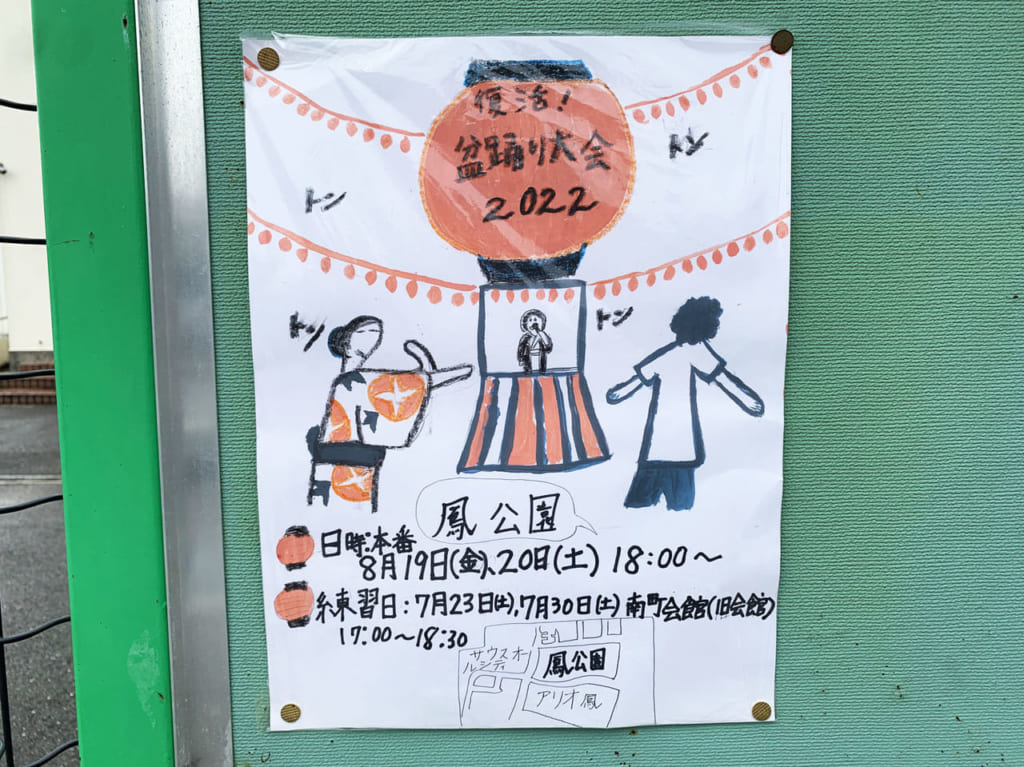 復活!
盆踊り大会
2022
トン
トン
トン
トン
鳳公園
日時:本番
8月19日(金)、20日(土) 18:00〜
練習日:7月23日(土),7月30日(土) 南町会館(旧会館)
17:00〜18:30
サウスオー
ルシティ
鳳公園
アリオ鳳